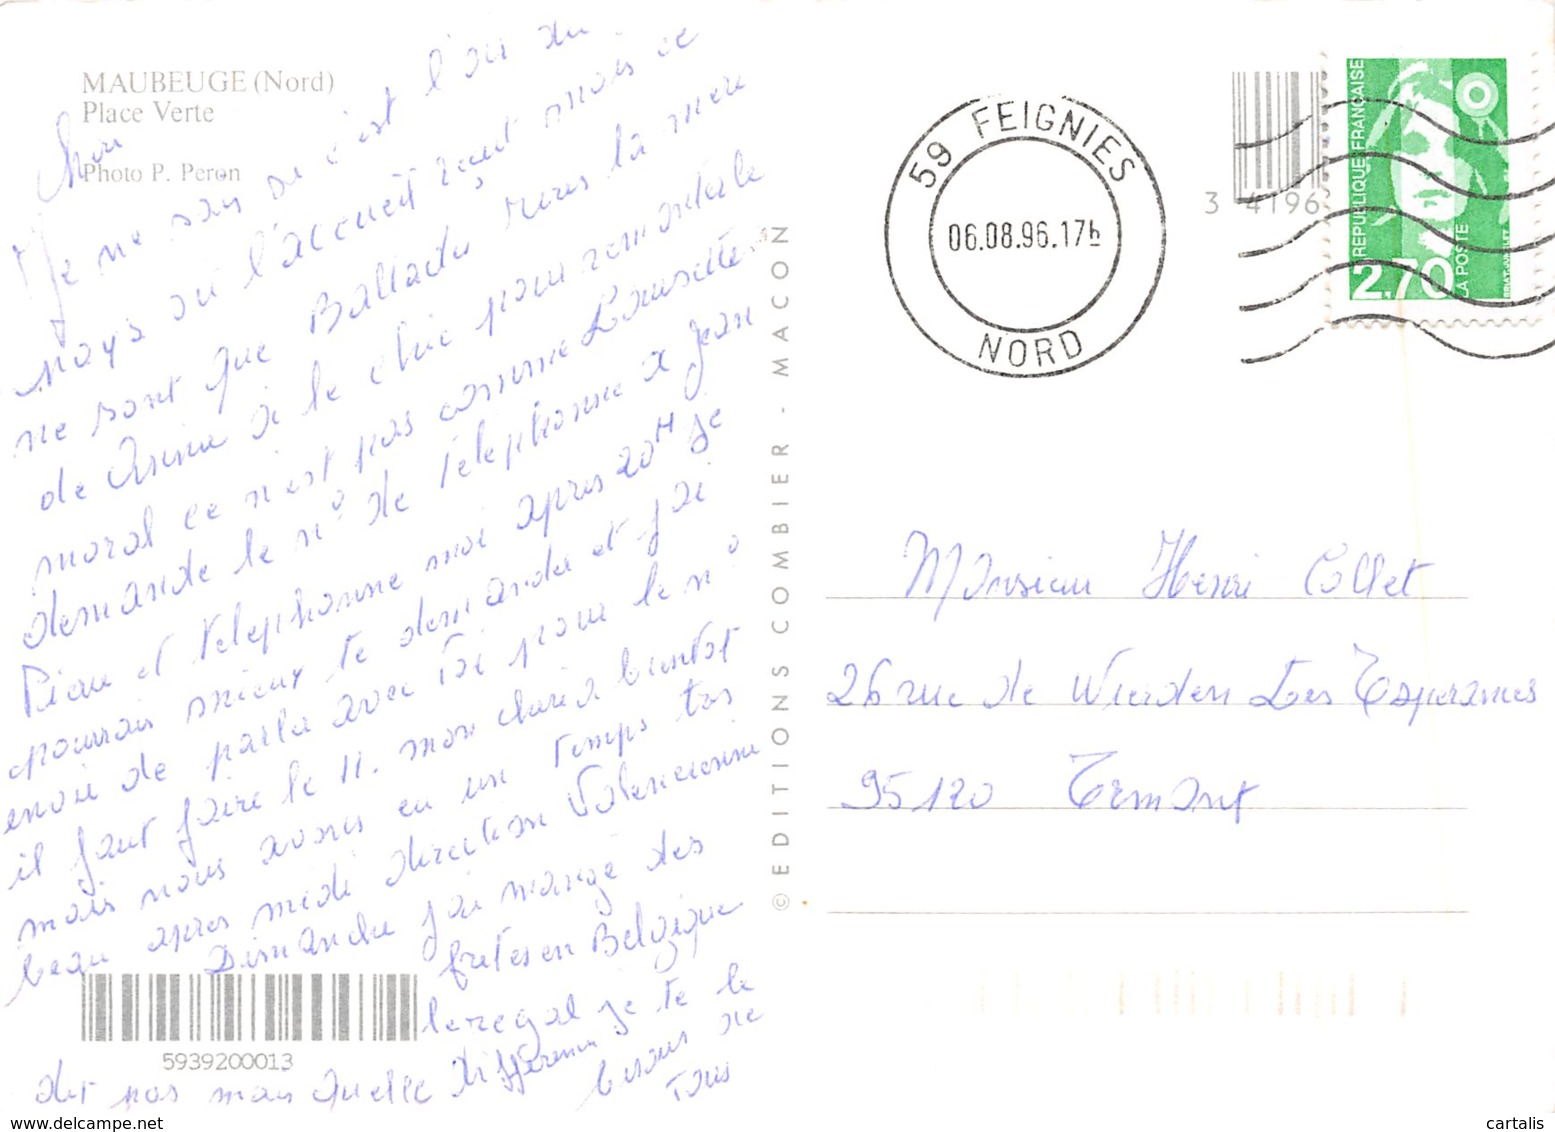 MAUBEUGE (Nord)
Place Verte
Photo P. Peron
Mon
Je ne sais ou c'est l'air du
pays ou l'accueil mais ce
ne sont que Ballades rires la mere
de Annie a le chic pour remonter le
moral ce n'est pas comme Lousette
demande le n° de téléphone a Jean
Pierre et telephonne moi apres 20H je
pourrais mieux te demander et j'ai
envie de parler avec toi pour le n°
il faut faire le 11. mon cheri a bientot
mais nous avons eu un temps tres
beau apres midi direction Valencienne
Dimanche j'ai mangé des
frites en Belgique
le regal je te le
dit pas mais quelle différence
bisous de
Tous
5939200013
© EDITIONS COMBIER - MACON
59 FEIGNIES
06.08.96.17h
NORD
3 4196
REPUBLIQUE FRANÇAISE
2,70
LA POSTE
Monsieur Henri Collet
26 rue de Wierden Les Esperances
95120 Ermont
cartalis